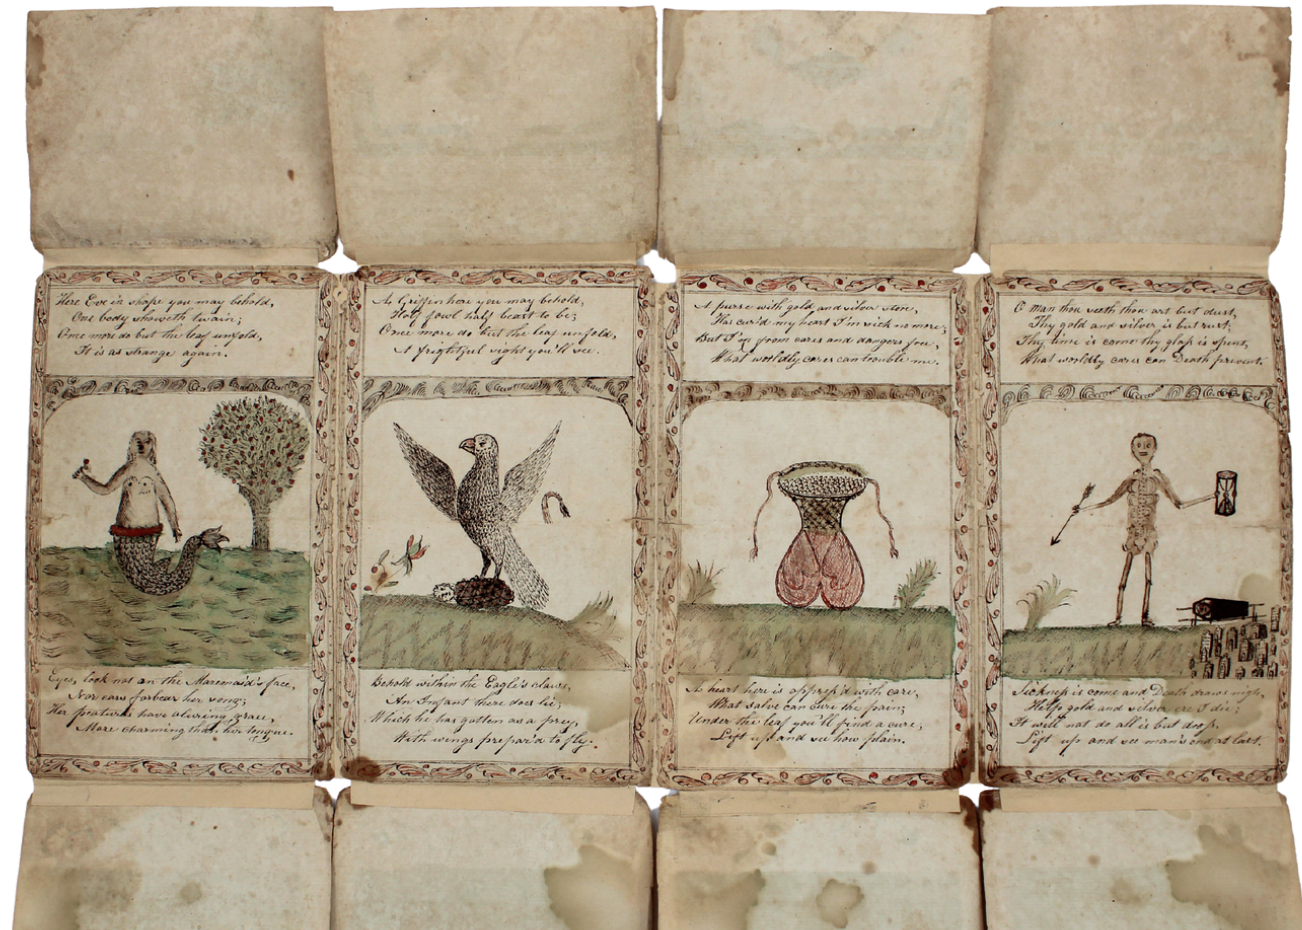 Here Eve in shape you may behold,
One body showeth twain;
Once more do but the leaf unfold,
It is as strange again.
Eyes, look not on the Mermaid's face,
Nor ears forbear her song;
Her features have aluring grace,
More charming than her tongue.
A Griffin here you may behold,
Half fowl half beast to be;
Once more do but the leaf unfold,
A frightful sight you'll see.
Behold within the Eagle's claws,
An Infant there does lie;
Which he has gotten as a prey,
With wings prepar'd to fly.
A purse with gold and silver store,
Has cur'd my heart I'm sick no more;
But I'm from cares and dangers free,
What worldly cares can trouble me.
A heart here is oppress'd with care,
What salve can cure the pain;
Under the leaf you'll find a cure,
Lift up and see how plain.
O man thou seeth thou art but dust,
Thy gold and silver is but rust,
Thy time is come thy glass is spent,
What worldly cares can Death prevent.
Sickness is come and Death draws nigh,
Help gold and silver ere I die;
It will not do all is but dross,
Lift up and see man's end at last.